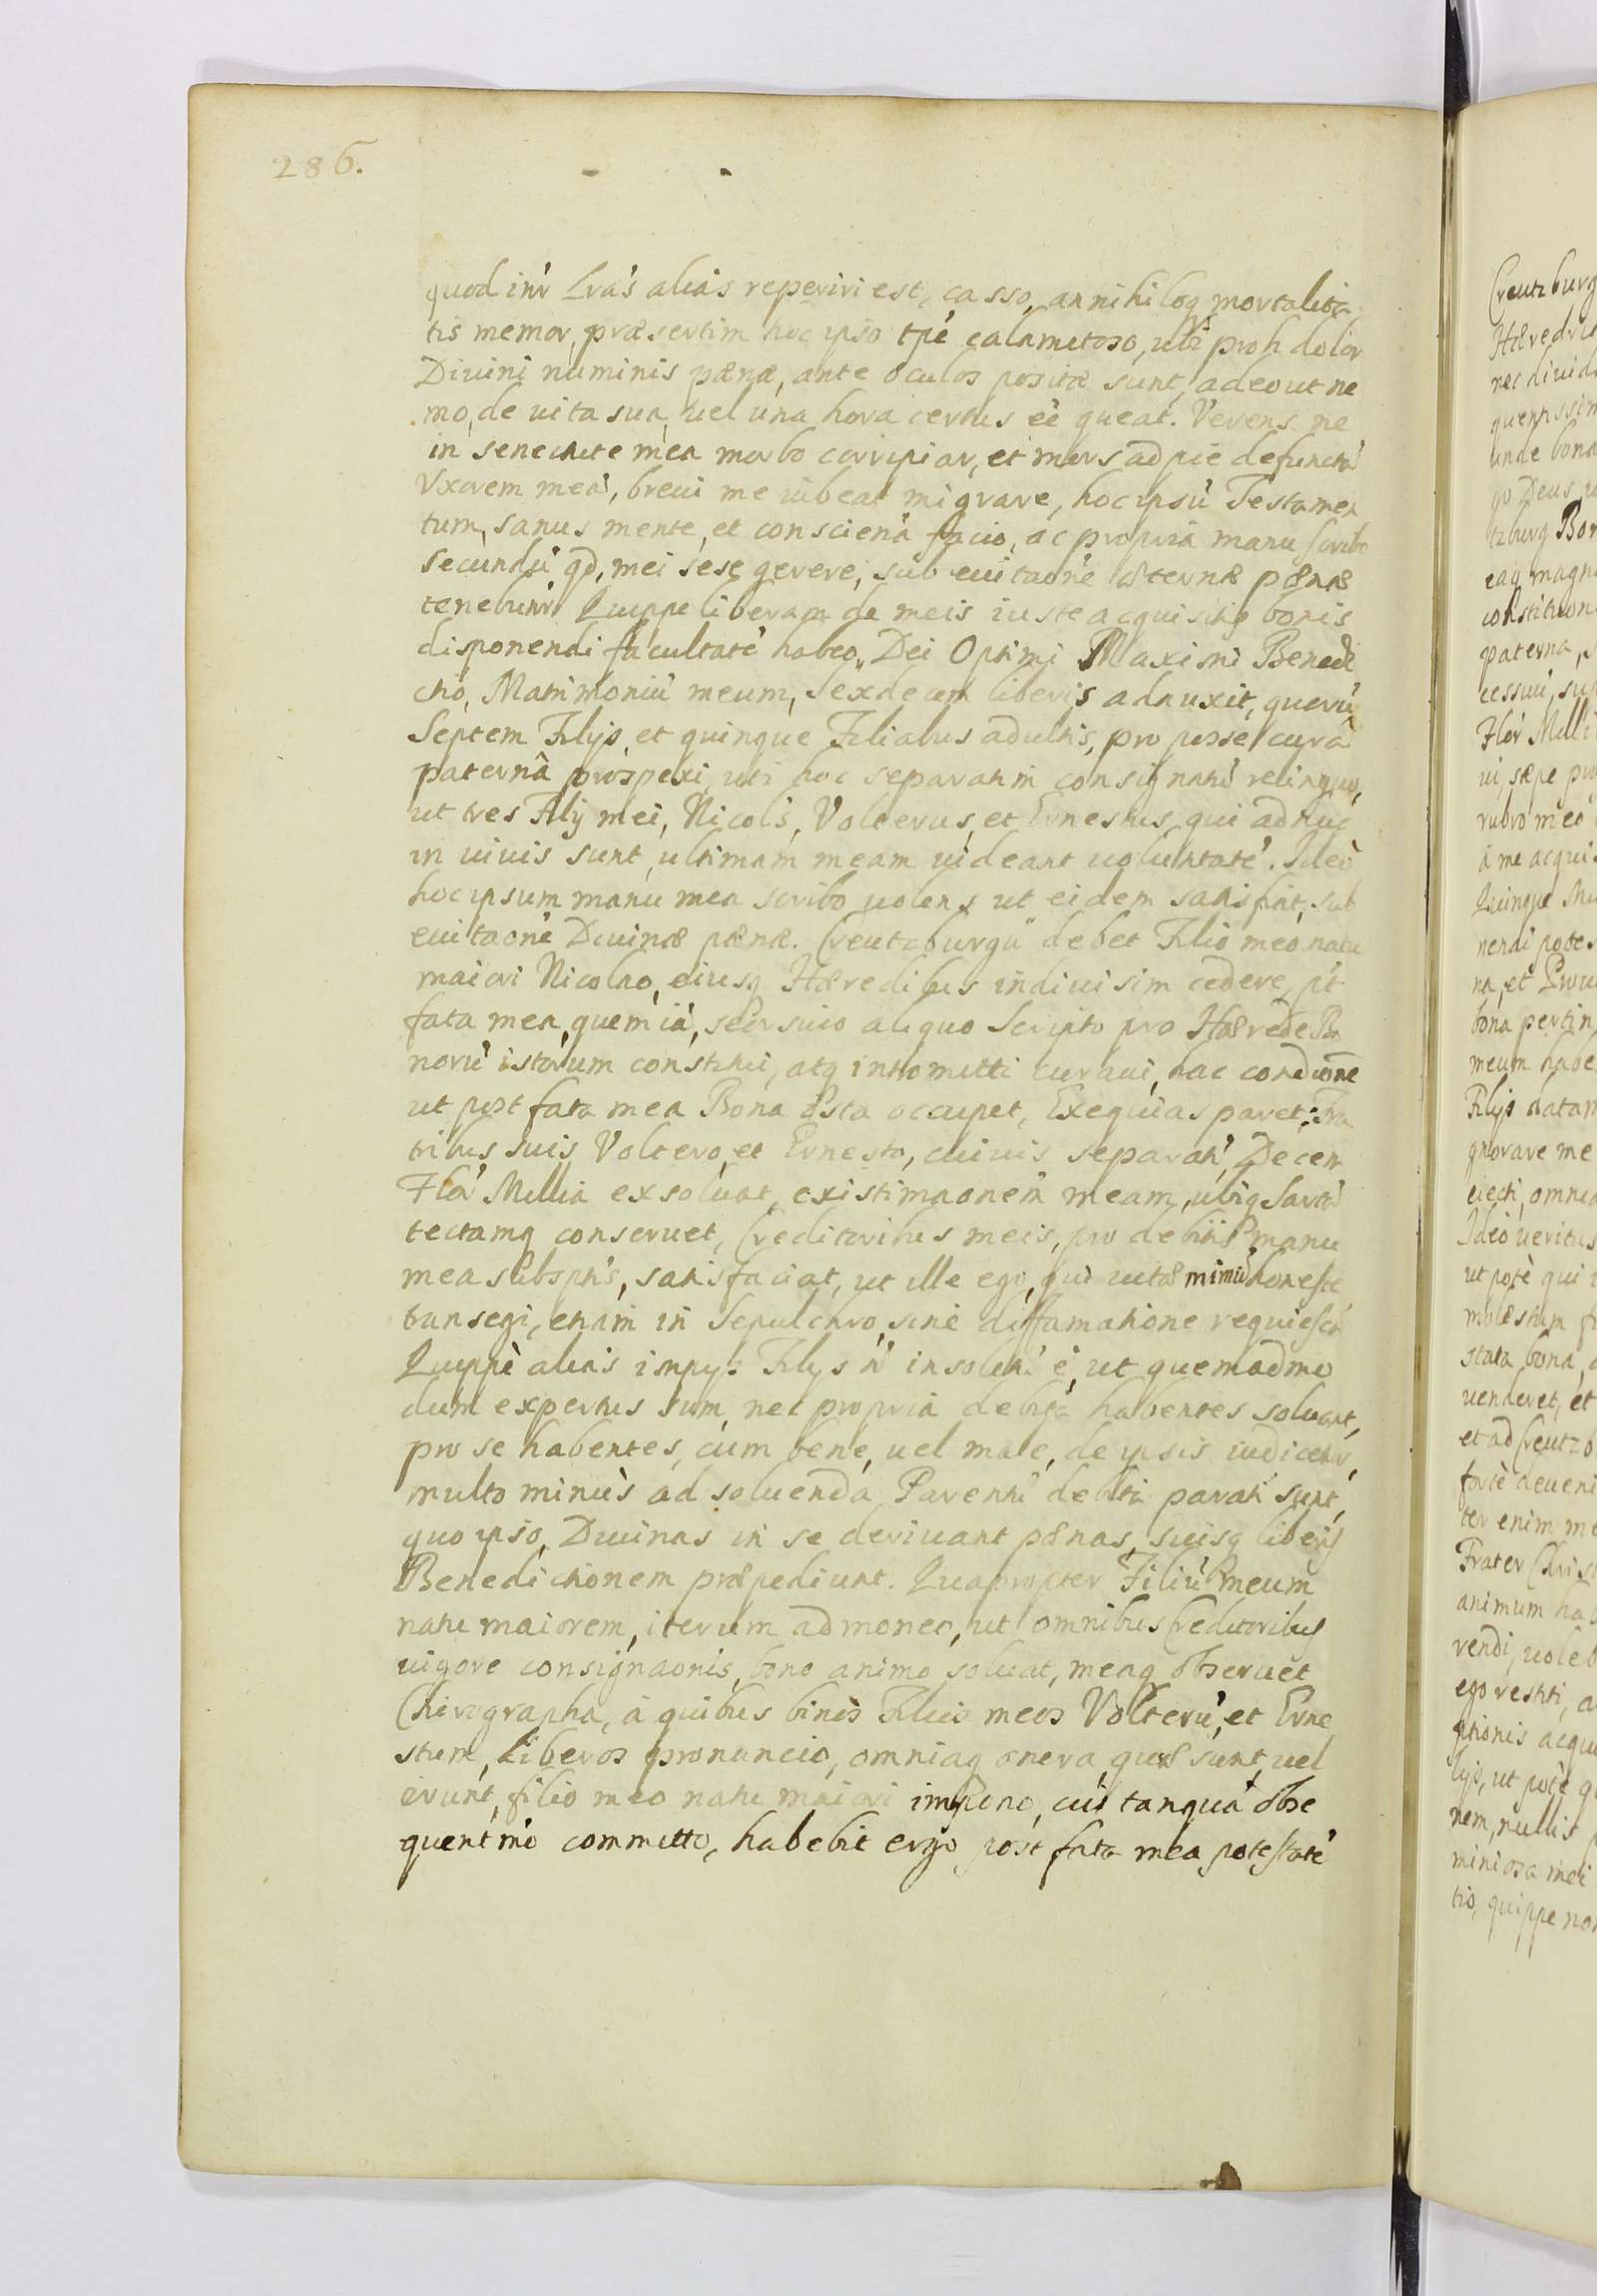 286.
quod inr̃ Lrãs alias reperiri est, casso, annihiloq mortalita
tis memor, præsertim hoc ipso tpẽ calamitoso, ubi proh dolor
Divini numinis pœnæ, ante oculos positæ sunt, adeo ut ne
mo, de uita sua, uel una hora certus eẽ queat. Verens ne
in senectute mea morbo corripiar, et mors ad pie defunctã
Vxorem meã, breui me iubeat migrare, hoc ipsũ Testamen
tum, sanus mente, et conscienã facio, ac propria manu scribo
secundũ qd, mei sese gerere, sub euitaonẽ æternæ pœnæ
tenebunr̃ Quippe liberam de meis iuste acquisitis bonis
disponendi facultatẽ habeo, Dei Optimi Maximi Benedi
ctio, Matrimoniũ meum, Sexdecem liberis adauxit, querũ
Septem Filijs, et quinque Filiabus adultis, pro posse curâ
paternâ prospexi, uti hoc separatim consignatũ relinquo,
ut tres Filij mei, Nicols, Volterus, et Ernestus, qui adhuc
in uiuis sunt, ultimam meam uideant uoluntatẽ. Ideò
hoc ipsum manu mea scribo uolens, ut eidem satis fiat, sub
euitaonẽ Diuinæ pœnæ. Creutzburgũ debet Filio meo natu
maiori Nicolao, eiusq Hæredibus indiuisim cedere, pt
fata mea, quem iã, seorsiuo aliquo Scripto pro Hærede Bo
norũ istorum constitui, atq intromitti curaui, hac condione
ut post fata mea Bona ista occupet, Exequias paret: Fra
tribus suis Voltero, et Ernesto, cuiuis separatĩ, Decem
Flor̃ Millia exsoluat, existimaonem meam, ubiq Sartã
tectamq conseruet, Creditoribus meis, pro debitis manu
mea subsptis, satisfaciat, ut ille ego, qui uitæ mimũ honeste
transegi, etiam in Sepulchro, sine diffamatione requiescã
Quippè alias impijs Filijs ñ insolitũ ẽ, ut quemadmo
dum expertus sum, nec propria debita habentes soluant,
pro se habentes, cum bene, uel male, de ipsis iudicetur,
multo minùs ad soluenda Parentũ debita parati sunt,
quo ipso, Diuinas in se deriuant pœnas, suisq liberis
Benedictionem præpediunt. Quapropter Filiũ meum
natu maiorem, iterum admoneo, ut omnibus Creditoribus
uigore consignaonis, bono animo soluat, meaq obseruet
Chirographa, à quibus binos Filios meos Volterũ, et Erne
stum, Liberos pronuncio, omniaq onera, quæ sunt, uel
erunt, filio meo natu maiori impono, cui tanquã obse
quentmo committo, habebit ergo post fata mea potestatẽ
Creutzburg
nec diuid
quentissim
unde bona
tzburg Bon
eaq magn
constituon
paterna,
cessiui, sup
Flor Milli
ui, sæpe pro
rubro meo
à me acqui
Quinque
nendi potes
na, et Prou
bona pertin
meum habe
Filijs datam
gnorare me
eiecti, omnia
Ideò ueritus
ut potè qui
molestum
stata bona,
uenderet, et
et ad Creutzb
fortè deueni
ter enim me
Frater Chris
animum hab
rendi, uoleb
ego restiti, a
ptionis acqu
lijs, ut potè q
nem, nullis
miniosa mei
tio, quippe non